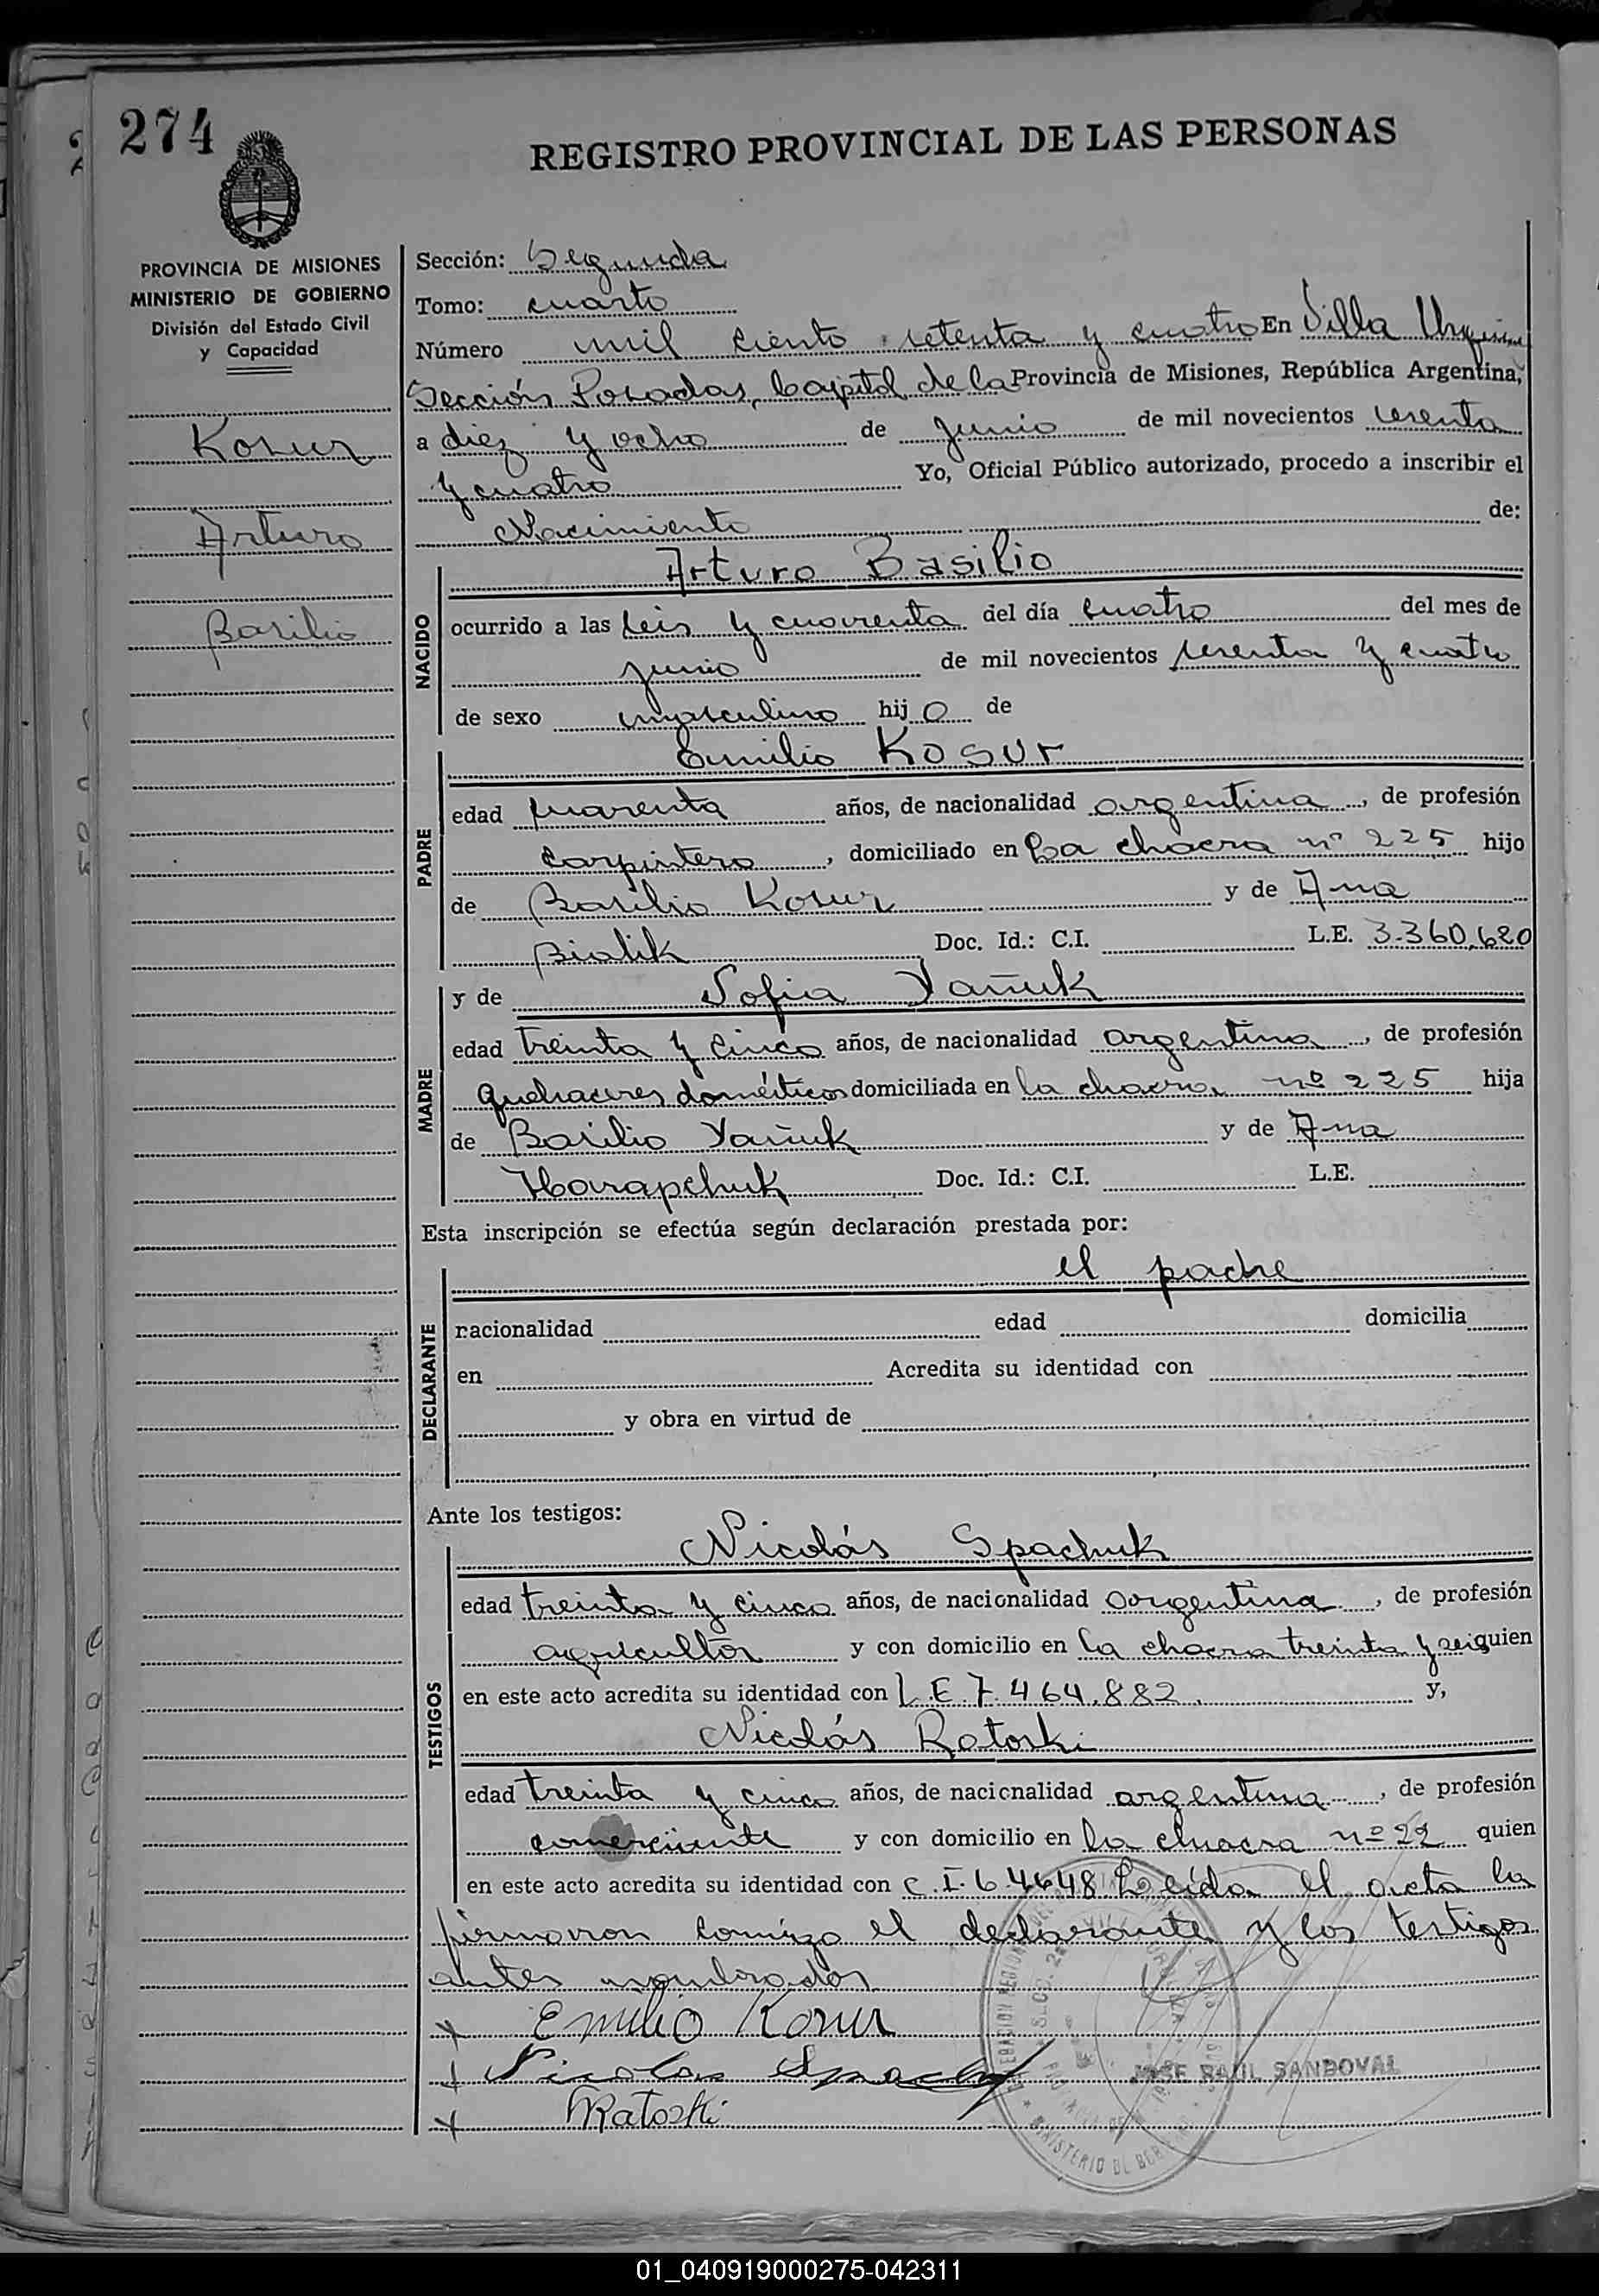 274
REGISTRO PROVINCIAL DE LAS PERSONAS
PROVINCIA DE MISIONES
MINISTERIO DE GOBIERNO
División del Estado Civil
y Capacidad
Kosur
Arturo
Basilio
Sección: Segunda
Tomo: cuarto
Número mil ciento setenta y cuatro En Villa Urquiza
Sección Posadas, Capital de la Provincia de Misiones, República Argentina,
a diez y ocho de Junio de mil novecientos sesenta
y cuatro Yo, Oficial Público autorizado, procedo a inscribir el
Nacimiento de:
NACIDO
Arturo Basilio
ocurrido a las seis y cuarenta del día cuatro del mes de
junio de mil novecientos sesenta y cuatro
de sexo masculino hijo de
PADRE
Emilio Kosur
edad cuarenta años, de nacionalidad argentina, de profesión
carpintero, domiciliado en La chacra nº 225 hijo
de Basilio Kosur y de Ana
Bialik Doc. Id.: C.I. L.E. 3.360.620
MADRE
y de Sofia Yañuk
edad treinta y cinco años, de nacionalidad argentina, de profesión
quehaceres domésticos domiciliada en la chacra nº 225 hija
de Basilio Yañuk y de Ana
Harapchuk Doc. Id.: C.I. L.E.
Esta inscripción se efectúa según declaración prestada por:
DECLARANTE
el padre
nacionalidad edad domicilia
en Acredita su identidad con
y obra en virtud de
Ante los testigos:
TESTIGOS
Nicolás Spachuk
edad treinta y cinco años, de nacionalidad argentina, de profesión
agricultor y con domicilio en la chacra treinta y seis quien
en este acto acredita su identidad con L.E 7.464.882. y,
Nicolás Ratoski
edad treinta y cinco años, de nacionalidad argentina, de profesión
comerciante y con domicilio en la chacra nº 22 quien
en este acto acredita su identidad con C.I. 64648 Leída el acta la
firmaron comigo el declarante y los testigos
antes nombrados
Emilio Kosur
Nicolas
Ratoski
JOSE RAUL SANDOVAL
MINISTERIO DE
01_040919000275-042311